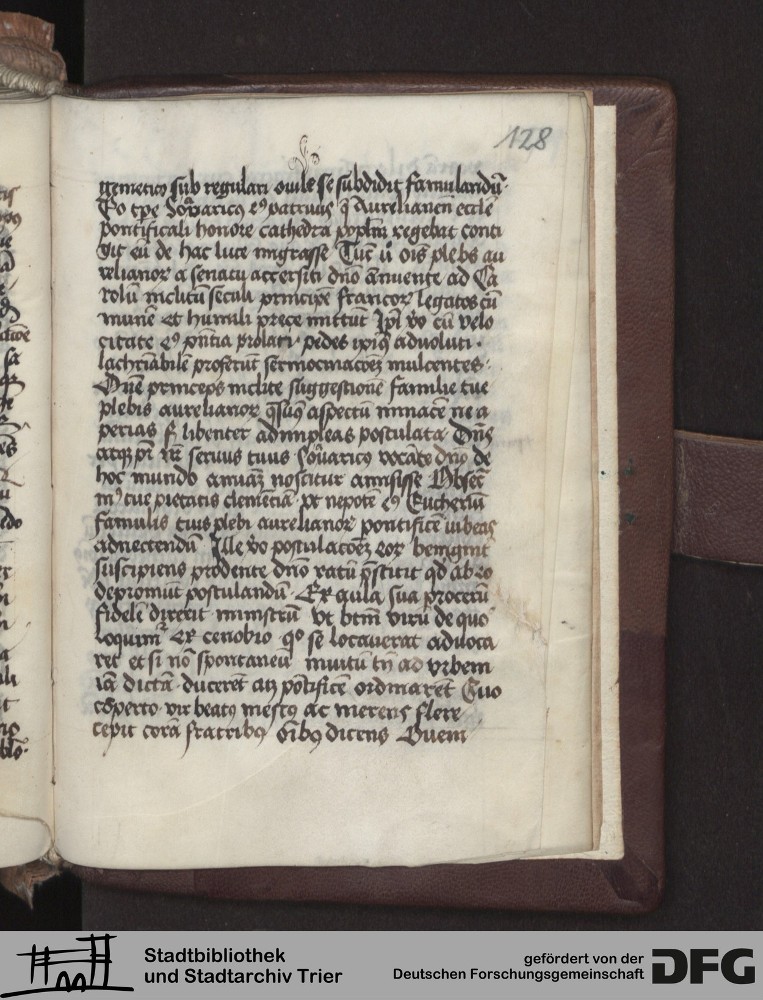 128
gemetico sub regulari ouile se subdidit famulandū
Eo tpe Soauaricꝰ eꝰ patruus q̄ Aurelianen̄ eccle
pontificali honore cathedra poplm̄ regebat conti
git eū de hac luce migrasse Tūc u° oīs plebs au
relianoꝝ a senatu accersiti dn̄o annuente ad Ca
rolū inclitū seculi principē francoꝝ legatos cū
munē et humili prece mittūt Ip̄i v̄o cū velo
citate eꝰ pn̄tia prolati pedes ipiꝰ aduoluti
lachrīabilē proferūt sermocinacōeȝ mulcentes
Dn̄e princeps inclite suggestionē familie tue
plebis aurelianoꝝ q̄sumꝰ aspectū minacē ne a
perias s̄ libenter adimpleas postulata Dn̄s
atqȝ pr̄ nr̄ seruus tuus Soauaricꝰ vocāte dn̄o de
hoc mundo animā noscitur amisisse Obsec̄
mꝰ tue pietatis clemenciā vt nepotē eꝰ Eucheriū
famulis tuis plebi aurelianoꝝ pontificē iubeas
adnectendū Ille v̄o postulacōeȝ eoꝝ benignit̄
suscipiens prodente dn̄o ratū p̄stitit qd̄ ab eo
depromūt postulandū Ex aula sua procerū
fidelē direxit ministrū vt btm̄ virū de quo
loquimr̄ ex cenobio q° se locauerat aduoca
ret et si nō spontaneū inuitū tn̄ ad vrbem
iā dictā ducerēt atqȝ pōtificē ordinarēt Quo
cōperto vir beatꝰ mestꝰ ac merens flere
cepit corā fratribꝰ om̄ibꝰ dicens Quem
Stadtbibliothek
und Stadtarchiv Trier
gefördert von der
Deutschen Forschungsgemeinschaft
DFG